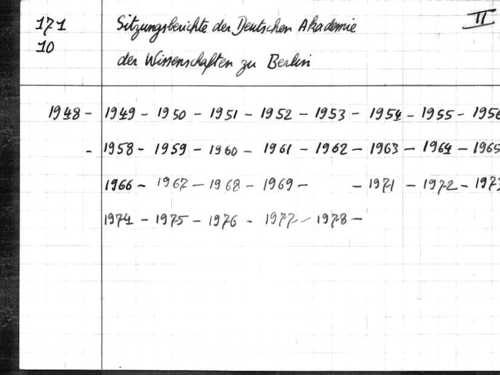 171 Sitzungsberichte der Deutschen Akademie II
10 der Wissenschaften zu Berlin
1948 - 1949 - 1950 - 1951 - 1952 - 1953 - 1954 - 1955 - 1956
- 1958 - 1959 - 1960 - 1961 - 1962 - 1963 - 1964 - 1965
1966 - 1967 - 1968 - 1969 - - 1971 - 1972 - 1973
1974 - 1975 - 1976 - 1977 - 1978 -